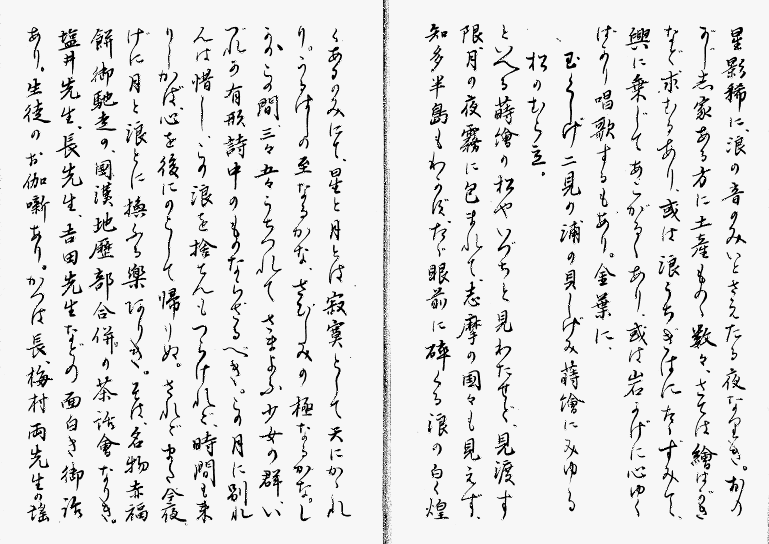 星影稀に、浪の音のみいとさえたる夜なりき。おの
がじし家ある方に土産もの数々、さては繪はがき
など求むるあり、或は浪うちぎはにたゝずみて、
興に乗じてあこがるゝあり、或は岩かげに心ゆく
ばかり唱歌するもあり。金葉に、
玉くしげ二見の浦の貝しげみ蒔繪にみゆる
松のむら立。
といへる蒔繪の松やいづちと見わたせど、見渡す
限月の夜霧に包まれて、志摩の国々も見えず、
知多半島もわかず、たゞ眼前に碎くる浪の白く煌
くあるのみにて、星と月とは寂寞として天にかゝれ
り。うるはしの至なるかな、さびしみの極なるかな。し
かもこの間三々五々うちつれてさまよふ少女の群、い
づれか有形詩中のものならざるべき。この月に別れ
んは惜しし、この浪を捨てんもつらけれど、時間も来
りしかば心を後にのこして帰りぬ。されどまた今夜
げに月と浪とに撫ふる楽ありき。そは、名物赤福
餅御馳走の、國漢地歴部合併の茶話會なりき。
塩井先生、長先生、吉田先生などの面白き御話
あり。生徒のお伽噺あり。かつは長、梅村両先生の謡